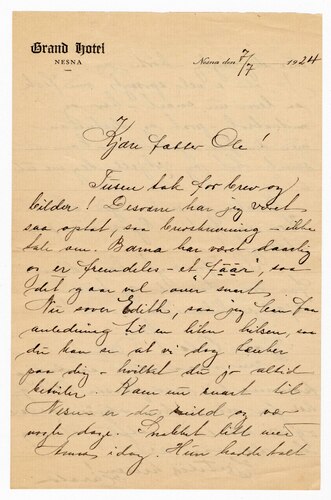 Grand Hotel
NESNA
Nesna den 7/7 1924
Kjære fætter Ole!
Tusen tak for brev og
bilder! Desværre har jeg været
saa optat, saa – ikke
tale om. Barna har været daarlig
og er fremdeles – et "får", saa
det gaar vel over snart.
Nu sover Edith, saa jeg kan faa
anledning til en liten hilsen, saa
du kan se at vi dog tænker
paa dig – hvilket du jo altid
betviler. Kom nu snart til
Nesna er du snild og vær
nogle dage. Snakket litt med
idag. Hun hadde talt